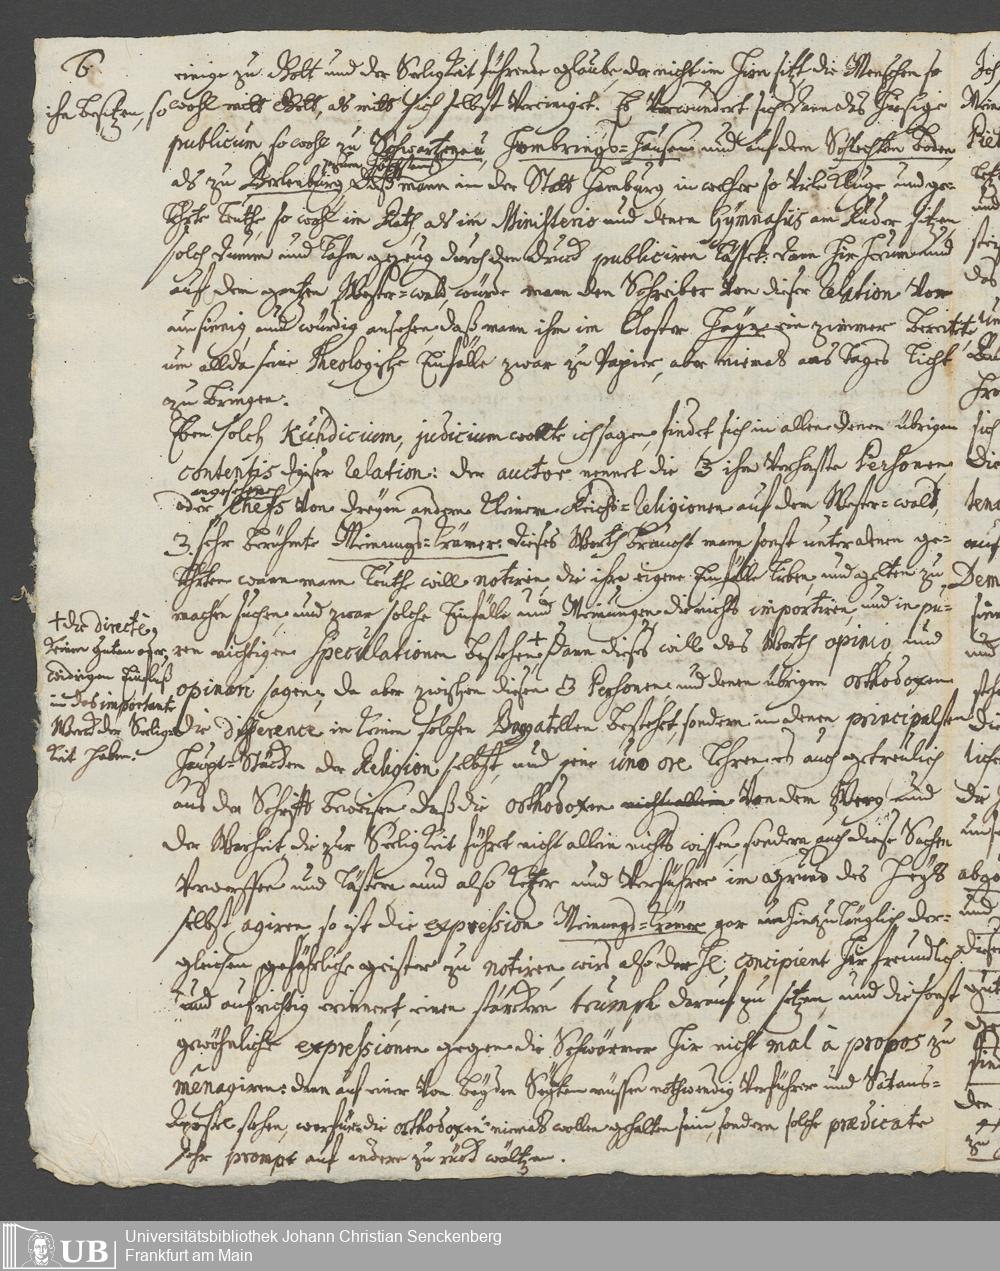 6
einige zu Gott und der Seeligkeit führende glaube, der nicht im Hirn sitzt die Menschen so
ihn besitzen, so wohl mitt Gott, als mitt sich selbst vereiniget. Es verwundert sich dann das hiesige
publicum so wohl zu Schwartzenau, Hombrings-Hausen und auf dem Schlechten boden,
als zu Berlenburg zum höchsten daß mann in der Statt Hamburg in welcher so viele kluge und ge-
lehrte leuthe, so wohl im Rath, als im Ministerio und denen Gymnasiis am Ruder sitzen,
solch dumm und lahm gezeug durch den druck publiciren lasset. dann hir herum und
auf dem gantzen Wester-wald, würde mann den Schreiber von dieser Relation vor
unsinnig und würdig ansehen, daß mann ihm im Closter Hayna ein zimmer bereitete
um allda seine Theologische Einfälle zwar zu Papier, aber niemals ans tages licht
zu bringen.
Eben solch Kühdicium, judicium wollte ich sagen, findet sich in allen denen übrigen
contentis dieser Relation: der auctor nennet die 3 ihm verhasste Personen
oder angesehene Chefs von dreyen andern kleinern Reichs-Religionen auf dem Wester-wald,
3. sehr berühmte Meinungs-Krämer: dieses Worth braucht mann sonst unter denen ge-
lehrten wann mann leuth will notiren, die ihre eigene Einfälle lieben, und gelten zu
machen suchen und zwar solche Einfälle und Meinungen, die nichts importiren, und in pu-
ren nichtigen Speculationen bestehen, + dann dieses will das Worth opinio, und
+ die directè
keinen guten oder
widrigen Einfluß
in das importante
Werck der Seelig-
keit haben.
opinari sagen; da aber zwischen diesen 3 Personen und denen übrigen orthodoxen
die difference in keinen solchen Bagatellen bestehet, sondern in denen principalsten
Haupt-Stücken der Religion selbst, und jene uno ore lehren, es auch getreulich
aus der Schrifft beweisen daß die orthodoxen nicht allein von dem Weeg und
der Warheit die zur Seeligkeit führet nicht allein nichts wissen, sondern auch diese Sachen
verwerffen und lästern und also Ketzer und Verführer im grund des Hertzens
selbst agiren, so ist die expression Meinungs-Krämer gar unhinzulänglich der-
gleichen gefährliche geister zu notiren, wird also der H. concipient hir freundlich
und aufrichtig erinnert, einen stärckern trumph darauf zu setzen, und die sonst
gewöhnliche expressionen gegen die Schwärmer hir nicht mal à propos zu
mênagiren: dann auf einer von beyden Seyten müssen nothwendig Verführer und Satans-
Apostel stehen, worfür die orthodoxen niemals wollen gehalten sein, sondern solche prædicate
sehr prompt auf andere zu rück wältzen.
Universitätsbibliothek Johann Christian Senckenberg
Frankfurt am Main
UB